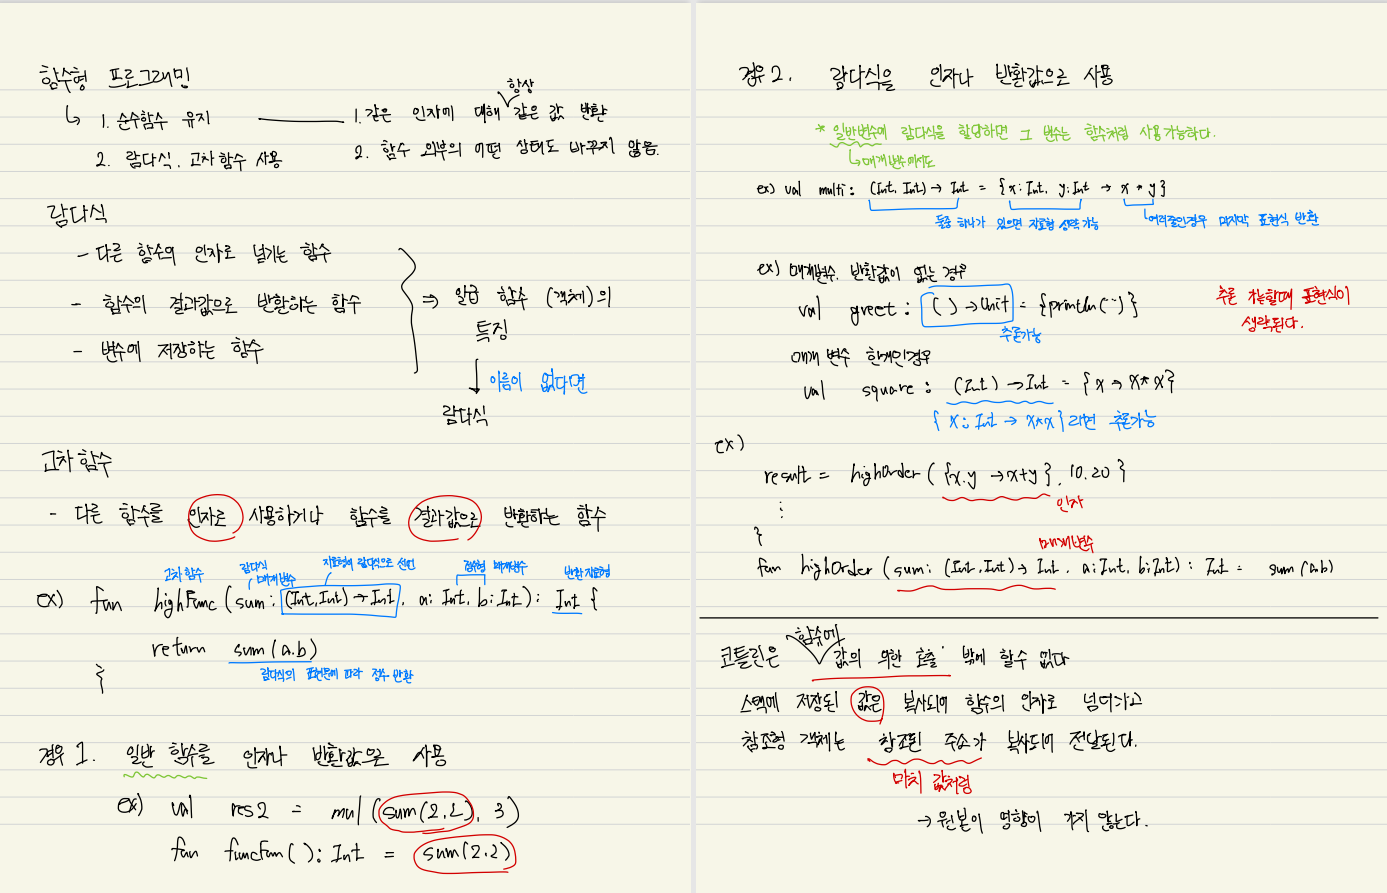 함수형 프로그래밍
↳ 1. 순수함수 유지 — 1. 같은 인자에 대해 항상 같은 값 반환
2. 람다식, 고차함수 사용 2. 함수 외부의 어떤 상태도 바꾸지 않음.
람다식
- 다른 함수의 인자로 넘기는 함수
- 함수의 결과값으로 반환하는 함수
- 변수에 저장하는 함수
⇒ 일급 함수 (객체)의
특징
↓ 이름이 없다면
람다식
고차 함수
- 다른 함수를 인자로 사용하거나 함수를 결과값으로 반환하는 함수
고차함수 람다식 매개변수 자료형이 람다식으로 선언 정수형 매개변수 반환 자료형
ex) fun highFunc (sum: (Int, Int) → Int, a: Int, b: Int): Int {
return sum(a.b)
람다식의 표현문에 따라 정수 반환
}
경우 1. 일반 함수를 인자나 반환값으로 사용
ex) val res2 = mul (sum(2,2), 3)
fun funcFun(): Int = sum(2.2)
경우 2. 람다식을 인자나 반환값으로 사용
* 일반변수에 람다식을 할당하면 그 변수는 함수처럼 사용가능하다.
↳ 매개변수에서도
ex) val multi: (Int, Int) → Int = {x: Int, y: Int → x * y}
둘중 하나가 있으면 자료형 생략 가능 여러줄인경우 마지막 표현식 반환
ex) 매개변수, 반환값이 없는 경우
val greet : ( ) → Unit = {println(" ")}
추론가능
추론 가능할때 표현식이
생략된다.
매개 변수 한개인경우
val square : (Int) → Int = {x → x*x}
{ x: Int → x*x} 라면 추론가능
ex)
result = highOrder ( {x.y → x+y}, 10.20 }
인자
⋮
}
매개변수
fun highOrder (sum: (Int, Int) → Int, a: Int, b: Int) : Int = sum (a.b)
코틀린은 함수에 값의 의한 호출' 밖에 할수 없다
스택에 저장된 값은 복사되어 함수의 인자로 넘어가고
참조형 객체는 참조된 주소가 복사되어 전달된다.
마치 값처럼
→ 원본이 영향이 가지 않는다.